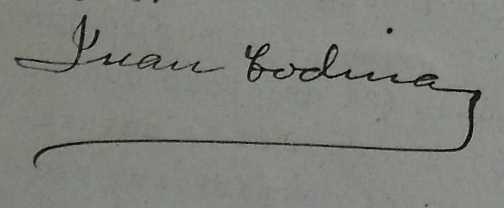 Juan Codina